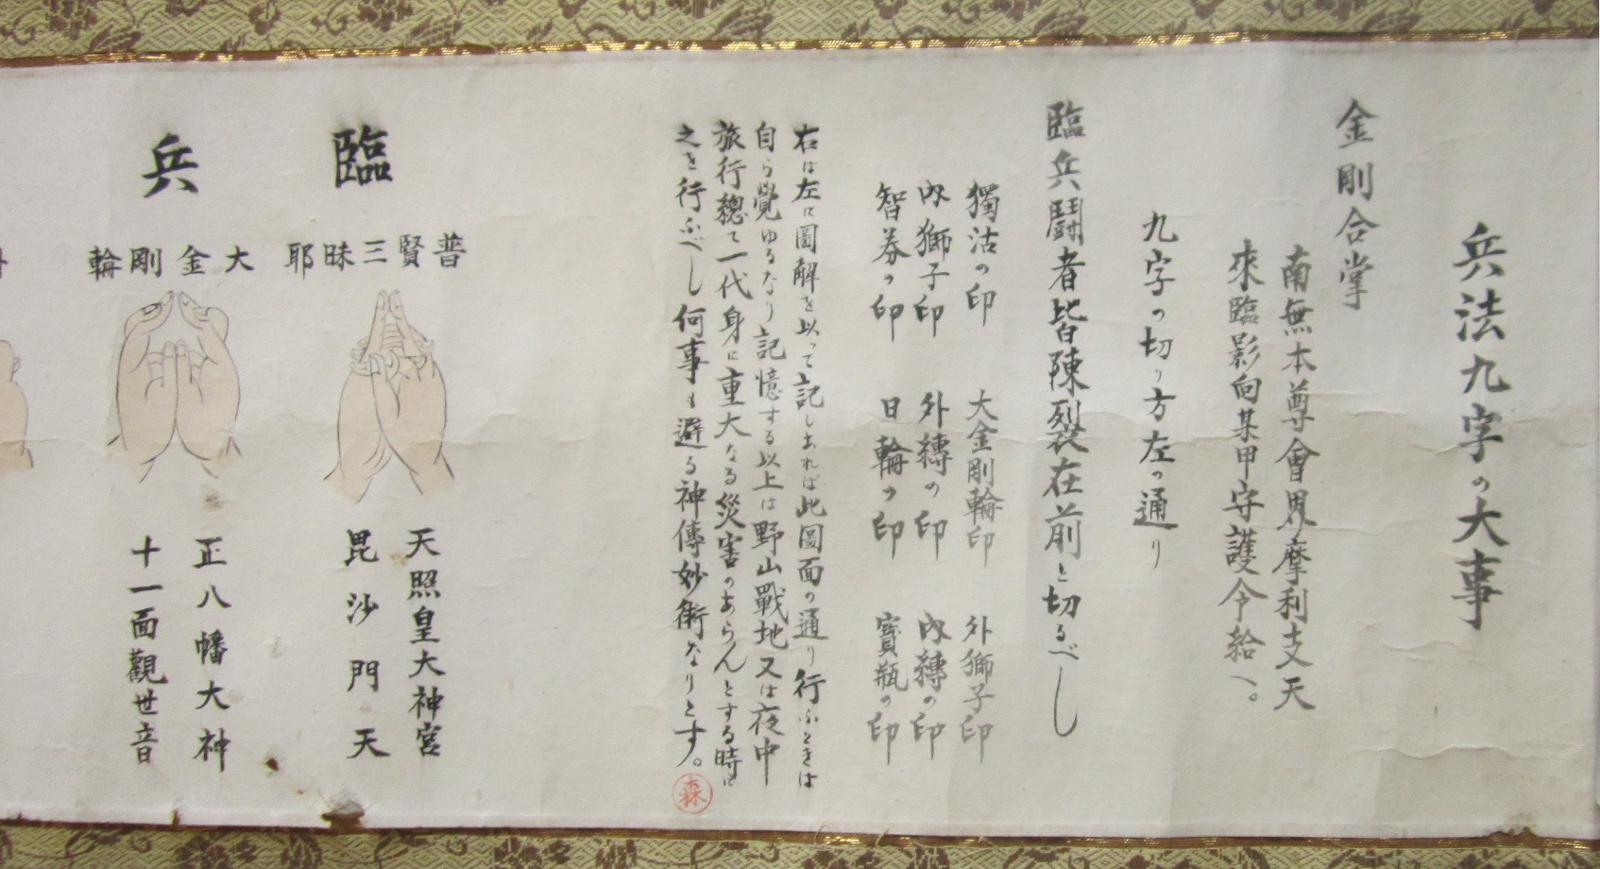 兵法九字の大事
金剛合掌
南無本尊會界摩利支天
來臨影向某甲守護令給へ。
九字の切り方左の通り
臨兵鬪者皆陳裂在前と切るべし
獨沽の印 大金剛輪印 外獅子印
内獅子印 外縛の印 内縛の印
智券の印 日輪の印 寳瓶の印
右は左に圖解を以って記しあれば此圖面の通り行ふときは
自ら覺ゆるなり記憶する以上は野山戰地又は夜中
旅行總て一代身に重大なる災害のあらんとする時に
之を行ふべし何事も避る神傳妙術なりとす。
森
臨
普賢三昧耶
天照皇大神宮
毘沙門天
兵
大金剛輪
正八幡大神
十一面觀世音